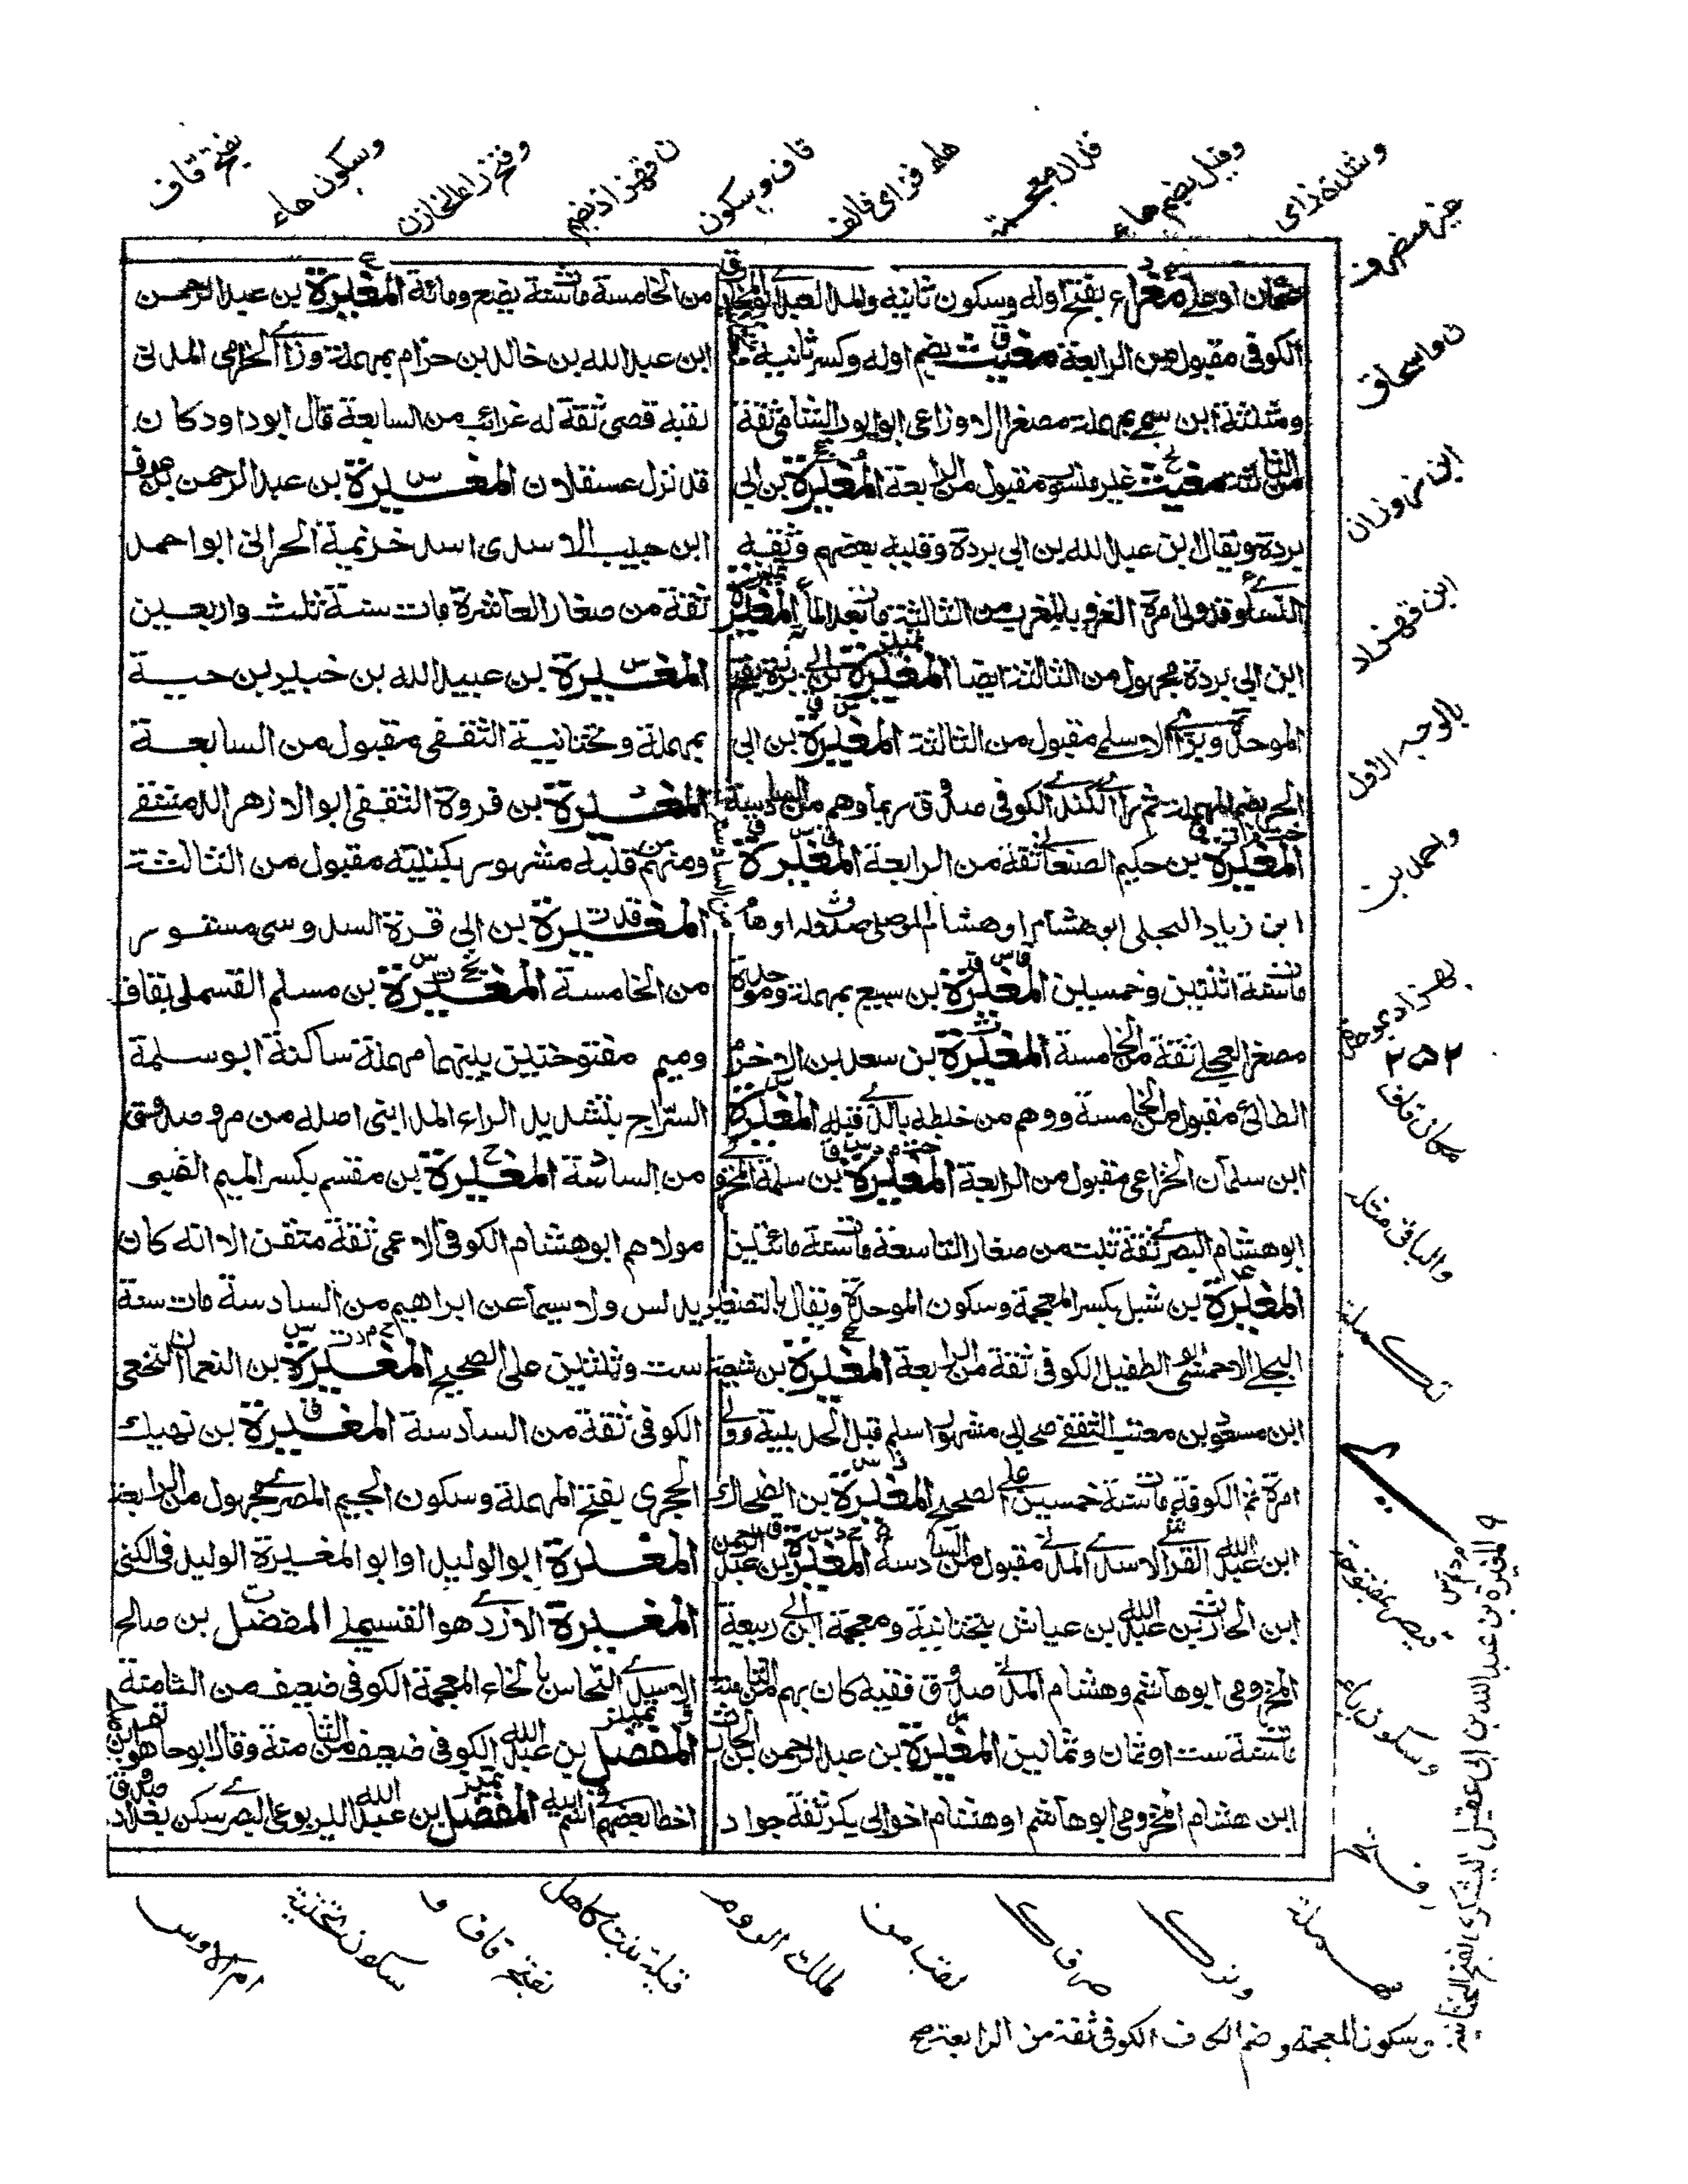 عثمان او علي مغراء بفتح اوله وسكون ثانيه والمد العبدي ابو المخارق
الكوفي مقبول من الرابعة مغيث بضم اوله وكسر ثانيه
ومثلثة ابن سمي بمهملة مصغرا الاوزاعي ابو ايوب الشامي ثقة
من الثالثة مغيث غير منسوب مقبول من الرابعة المغيرة بن ابي
بردة ويقال ابن عبد الله بن ابي بردة وقلبه بعضهم وثقه
النسائي وقد ولي امرة الغزو بالمغرب من الثالثة مات بعد المائة المغيرة
ابن ابي بردة مجهول من الثالثة ايضا المغيرة بن ابي برزة بفتح
الموحدة وبزاي الاسلمي مقبول من الثالثة المغيرة بن ابي
الحر بضم المهملة ثم راء الكندي الكوفي صدوق ربما وهم من السادسة
المغيرة بن حكيم الصنعاني ثقة من الرابعة المغيرة
ابن زياد البجلي ابو هشام او هشام الموصلي صدوق له اوهام من السادسة
مات سنة اثنتين وخمسين المغيرة بن سبيع بمهملة وموحدة
مصغر العجلي ثقة من الخامسة المغيرة بن سعد بن الاخرم
الطائي مقبول من الخامسة ووهم من خلطه بالذي قبله المغيرة
ابن سلمان الخزاعي مقبول من الرابعة المغيرة بن سلمة المخزومي
ابو هشام البصري ثقة ثبت من صغار التاسعة مات سنة مائتين
المغيرة بن شبل بكسر المعجمة وسكون الموحدة ويقال بالتصغير
البجلي الاحمسي ابو الطفيل الكوفي ثقة من الرابعة المغيرة بن شعبة
ابن مسعود بن معتب الثقفي صحابي مشهور اسلم قبل الحديبية وولي
امرة ثم الكوفة مات سنة خمسين على الصحيح المغيرة بن الضحاك
ابن عبد الله القرشي الاسدي المدني مقبول من السادسة المغيرة بن عبد الرحمن
ابن الحارث بن عبد الله بن عياش بتحتانية ومعجمة ابن ابي ربيعة
المخزومي ابو هاشم وهشام المدني صدوق فقيه كان يهم من الثامنة
مات سنة ست او ثمان وثمانين المغيرة بن عبد الرحمن بن الحارث
ابن هشام المخزومي ابو هاشم او هشام اخو ابي بكر ثقة جواد
من الخامسة مات سنة بضع ومائة المغيرة بن عبد الرحمن
ابن عبد الله بن خالد بن حزام بمهملة وزاي الحزامي المدني
لقبه قصي ثقة له غرائب من السابعة قال ابو داود كان
قد نزل عسقلان المغيرة بن عبد الرحمن بن عوف
ابن حبيب الاسدي اسد خزيمة الحراني ابو احمد
ثقة من صغار العاشرة مات سنة ثلث واربعين
المغيرة بن عبيد الله بن خبير بن حية
بمهملة وتحتانية الثقفي مقبول من السابعة
المغيرة بن فروة الثقفي ابو الازهر الدمشقي
ومنهم من قلبه مشهور بكنيته مقبول من الثالثة
المغيرة بن ابي قرة السدوسي مستور
من الخامسة المغيرة بن مسلم القسملي بقاف
وميم مفتوحتين بينهما مهملة ساكنة ابو سلمة
السراج بتشديد الراء المدايني اصله من مرو صدوق
من السادسة المغيرة بن مقسم بكسر الميم الضبي
مولاهم ابو هشام الكوفي الاعمى ثقة متقن الا انه كان
يدلس ولا سيما عن ابراهيم من السادسة مات سنة
ست وثلثين على الصحيح المغيرة بن النعمان النخعي
الكوفي ثقة من السادسة المغيرة بن نهيك
الحجري بفتح المهملة وسكون الجيم المصري مجهول من الرابعة
المغيرة ابو الوليد او ابو المغيرة الوليد في الكنى
المغيرة الازدي هو القسملي المفضل بن صالح
الاسدي النحاس بالخاء المعجمة الكوفي ضعيف من الثامنة
المفضل بن عبد الله الكوفي ضعيف من الثامنة وقال ابو حاتم هو ابن
اخطأ بعضهم في اسم ابيه المفضل بن عبد الله اليربوعي البصري سكن بغداد صدوق
وشدة زاي
وقيل بضم هاء
فزال معجمة
هاء فزاي فالف
قاف وسكون
ن قهزاد بضم
وفتح زاء الخازن
وسكون هاء
بفتح قاف
ن واسحاق
ابن قهزاد
بالوجه الاول
واحمد بن
٢٥٢
والباقي مثله
تكملة
وسكون ياء
ملك الروم
قيلة بنت كاهل
بفتح قاف و
سكون تحتية
ام الاوس
٩ المغيرة بن عبد الله بن ابي عقيل اليشكري بفتح التحتانية
وسكون المعجمة وضم الكاف الكوفي ثقة من الرابعة صح